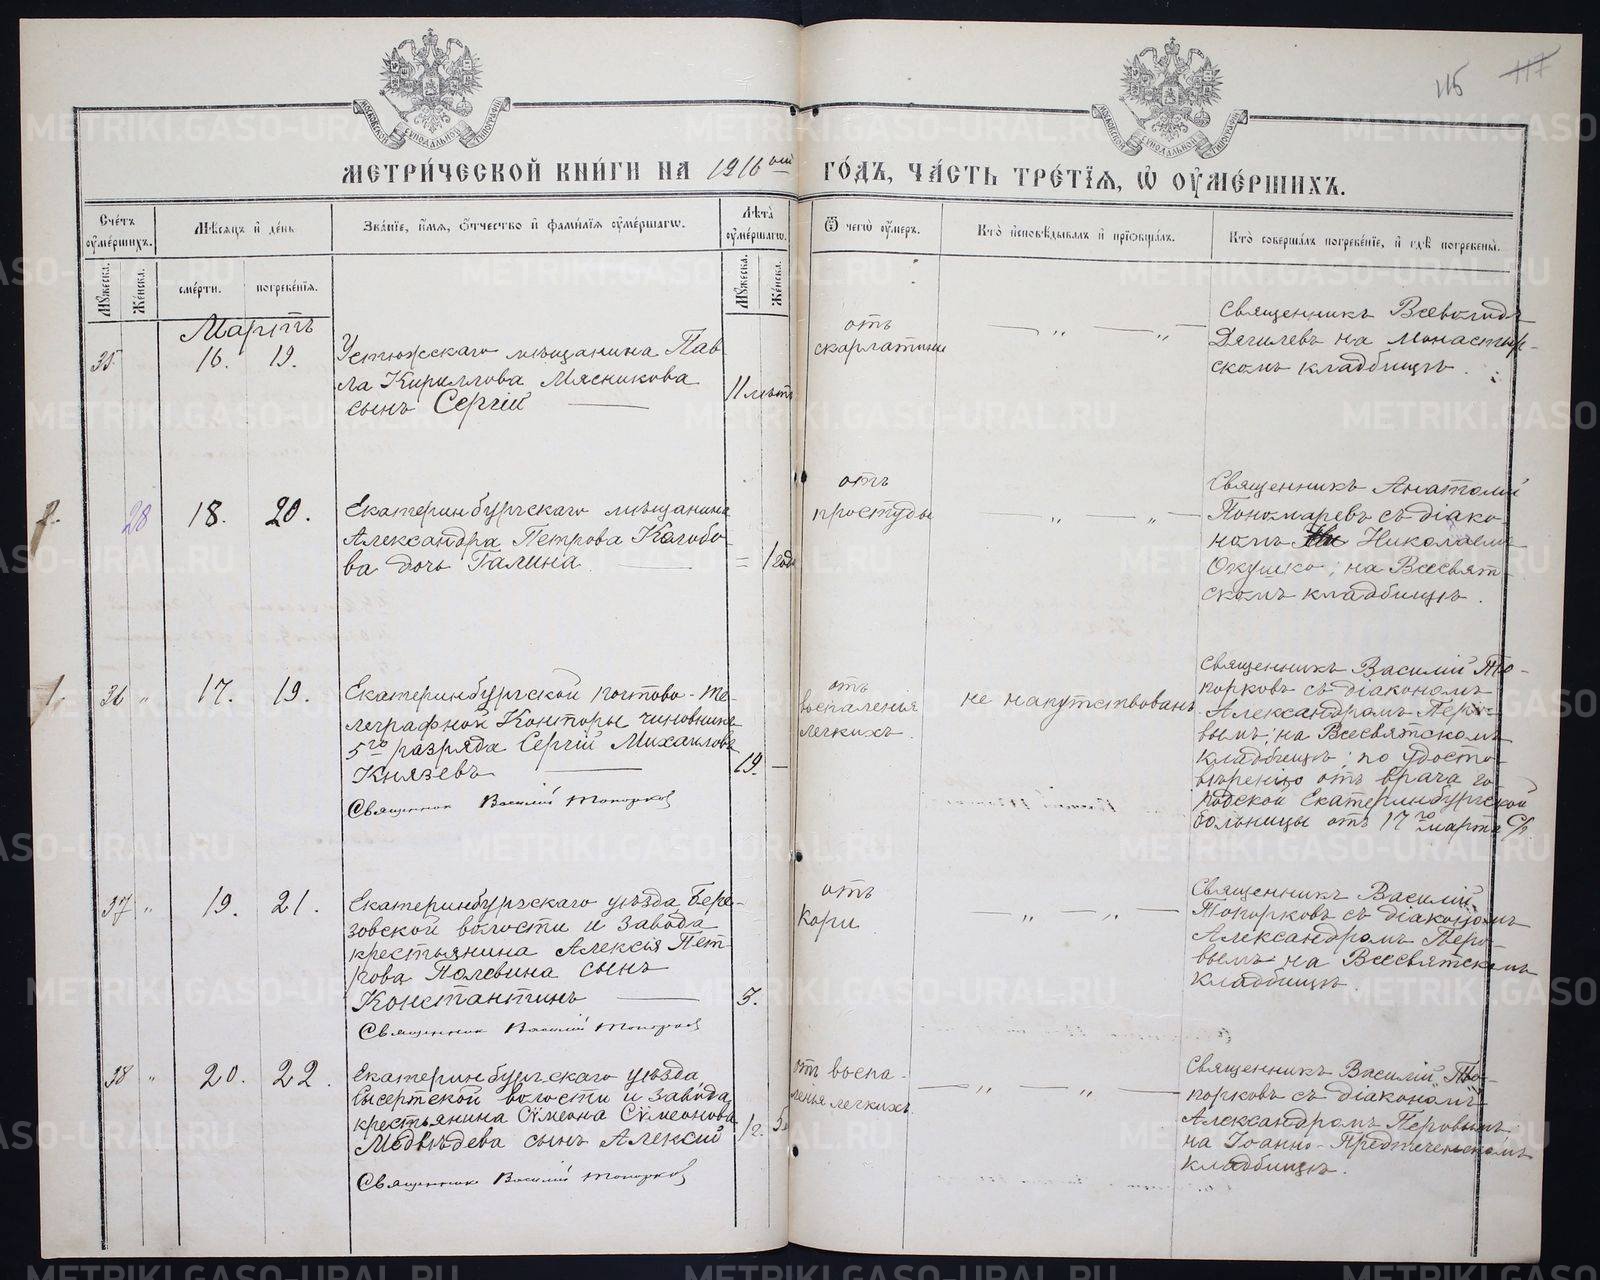 115
117
МЕТРИ́ЧЕСКОЙ КНИ́ГИ НА 1916 ГО́ДЪ, ЧА́СТЬ ТРЕ́ТІЯ, Ѿ ОУМЕ́РШИХЪ.
Сче́тъ оумéршихъ.
Мꙋжеска.
Же́нска.
Мѣсяцъ и де́нь
сме́рти.
погребе́нія.
Зва́ніе, и́мя, о́тчество и фами́лія оумéршагѡ.
Лѣта̀ оумéршагѡ.
Мꙋжеска.
Же́нска.
Ѿ чегѡ̀ оу́меръ.
Кто̀ и҆сповѣ́дывалъ и прїѡбща́лъ.
Кто̀ соверша́лъ погребе́ніе, и гдѣ̀ погребены̀.
Мартъ
35
16.
19.
Устюжскаго мѣщанина Пав
ла Кириллова Мясникова
сынъ Сергій
11 лѣтъ
отъ
скарлатины
Священникъ Всеволодъ
Дягилевъ на Монастыр-
скомъ кладбищѣ.
2.
28
18.
20.
Екатеринбургскаго мѣщанина
Александра Петрова Коробо
ва дочь Галина
= 1 годъ
отъ
простуды
Священникъ Анатолій
Пономаревъ съ діако-
номъ Николаемъ
Окушко; на Всесвят-
скомъ кладбищѣ.
1.
36 "
17.
19.
Екатеринбургской почтово-те-
леграфной Конторы чиновникъ
5го разряда Сергій Михаиловъ
Князевъ
19. —
Священник Василій Топорков
отъ
воспаленія
легкихъ.
не напутствованъ
Священникъ Василій То-
порковъ съ діакономъ
Александромъ Перо-
вымъ; на Всесвятскомъ
кладбищѣ; по удосто-
вѣренію отъ врача го
родской Екатеринбургской
больницы отъ 17го марта с/г.
37 "
19.
21.
Екатеринбургскаго уѣзда Бере-
зовской волости и завода
крестьянина Алексія Пет-
рова Полевина сынъ
Константинъ
3.
Священник Василій Топорков
отъ
кори
Священникъ Василій
Топорковъ съ діакономъ
Александромъ Перо-
вымъ на Всесвятскомъ
кладбищѣ.
38 "
20.
22.
Екатеринбургскаго уѣзда
Сысертской волости и завода,
крестьянина Сѵмеона Сѵмеонова
Медвѣдева сынъ Алексій
1/2.
Священник Василій Топорков
отъ воспа-
ленія легкихъ.
Священникъ Василій То-
порковъ съ діакономъ
Александромъ Перовымъ
на Іоанно-Предтеченскомъ
кладбищѣ.
METRIKI.GASO-URAL.RU